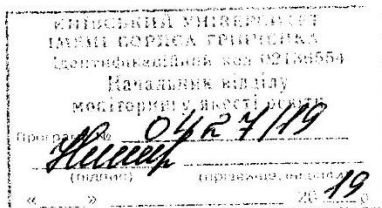 КИЇВСЬКИЙ УНІВЕРСИТЕТ
ІМЕНІ БОРИСА ГРІНЧЕНКА
Ідентифікаційний код 02136554
Начальник відділу
моніторингу якості освіти
Програма № 0427/19
(підпис) (прізвище, ініціали)
« » 2019 р.